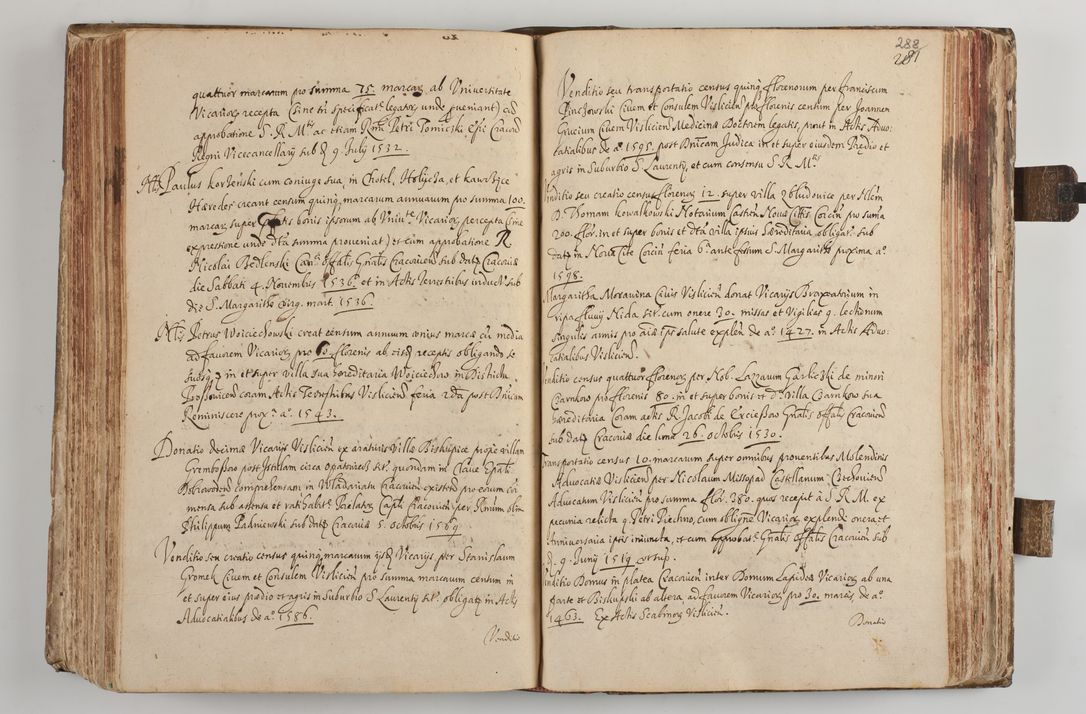 quattuor marcarum pro summa 75. marcar. ab Universitate
Vicarior. recepta (sine tñ specificate legator. unde proveniant) cũ
approbatione S. R. Mtis ac etiam Rmi Petri Tomicki Epi Cracovi
Regni Vicecancellarij sub d. 9. July 1532.
Paulus Korżenski cum coniuge sua, in Chotel, Holÿcża, et kawcżÿce
Hæredes creant censum quinq marcarum annuarum pro summa 100.
marcar. super bonis ipsorum ab Univte Vicarior. percepta (sine
expressione unde dta summa proveniat) et cum approbatione R
Nicolai Bedlenski Can. Offalis Gnalis Cracovien. sub data Cracoviæ
die Sabbati 4. Novembris 1536. et in Actis Terrestribus induct. sub
die S. Margarithæ Virg. mart. 1536.
Petrus Woiciechowski creat censum annuum unius marcæ cũ media
ad favorem Vicarior. pro 60. florenis ab eisdem receptis obligando se
in et super villa sua hæreditaria Woiciechow in Districtu
coram Actis Terrestribus Vislicien. feria 2da post Dnicam
Reminiscere prox. a. 1543.
Donatio decimæ Vicarijs Vislicien. ex araturis Villæ Biskupice prope villam
Gramboszow post Istulam circa Opatoviec sit. quondam in Clave Epali
comprehensam in Wladariatu Cracovien. existen. pro earum
menta sub assensu et ratihabit. Prælator. Capli Cracovien. per Rmum olim
Philippum Padniewski sub data Cracoviæ 5. octobris 1569.
Venditio seu creatio census quinq marcarum ijsdem Vicarijs per Stanislaum
Gromek Civem et Consulem Vislicien. pro summa marcarum centum in
et super eius prædio et agris in Suburbio S. Laurentij sit. obligat. in Actis
Advocatialibus de a. 1586.
Venditio
288
281
Venditio seu transportatio census quinq florenorum per Franciscum
Pinczowski Civem et Consulem Vislicien. pro florenis centum per Joannem
Grucium Civem Vislicien. Medicinæ Doctorem legatis, prout in Actis Advo:
catialibus de a. 1595. post Dnicam Judica in et super eiusdem Prædio et
agris in Suburbio S. Laurentij, et cum consensu S. R. Mtis
Venditio seu creatio census florenor. 12. super villa Zbludowice per
D. Thomam Kowalkowski Notarium Castren. Novæ Cittis Corcin. pro suma
200. flor. in et super bonis et dta villa ipsius hæreditaria obligat. sub
data in Nova Citte Corcin. feria 6. ante festum S. Margarithæ proxima a.
1598.
Margaritha Morawina Civis Vislicien. donat Vicarijs Braxatorium in
ripa fluvij Nida sit. cum onere 30. missas et Vigilias 9. lectionum
singulis annis pro aiæ ipsius salute explen. de a. 1427. in Actis Advo:
catialibus Vislicien.
Venditio census quattuor florenor. per Nob. Lazarum Garliczki de minori
Czarnkow pro florenis 80. in et super bonis et dta villa Czarnkow sua
hæreditaria Coram actis R. Jacobi de Gnalis offalis Cracovien.
sub data Cracoviæ die lunæ 26. octobris 1530.
Transportatio census 10. marcarum super omnibus proventibus Molendinis
Advocatiæ Vislicien. per Nicolaum Missopad Castellanum Czechovien.
Advocatum Vislicien. pro summa flor. 380. quas recepit à S. R. M. ex
pecunia relicta q. Petri Piechno, cum obligne Vicarior. explendi onera et
Anniversaria ipsis iniuncta, et cum approbate Gnalis offalis Cracovien. sub
d. 9. Junij 1519. ut sup.
Venditio Domus in platea Cracovien. inter Domum Lapideæ Vicarior. ab una
parte et Biskupski ab altera, ad favorem Vicarior. pro 30. marcis de a.
1463. Ex Actis Scabinor. Vislicien.
Donatio